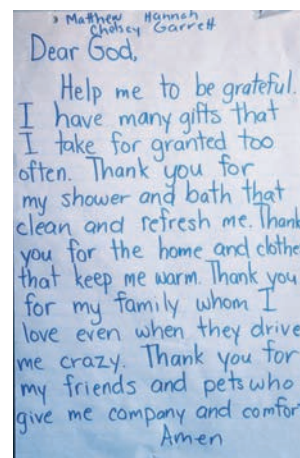 Matthew Hannah
Chelsey Garrett
Dear God,
Help me to be grateful.
I have many gifts that
I take for granted too
often. Thank you for
my shower and bath that
clean and refresh me. Thank
you for the home and clothe
that keep me warm. Thank you
for my family whom I
love even when they drive
me crazy. Thank you for
my friends and pets who
give me company and comfor
Amen